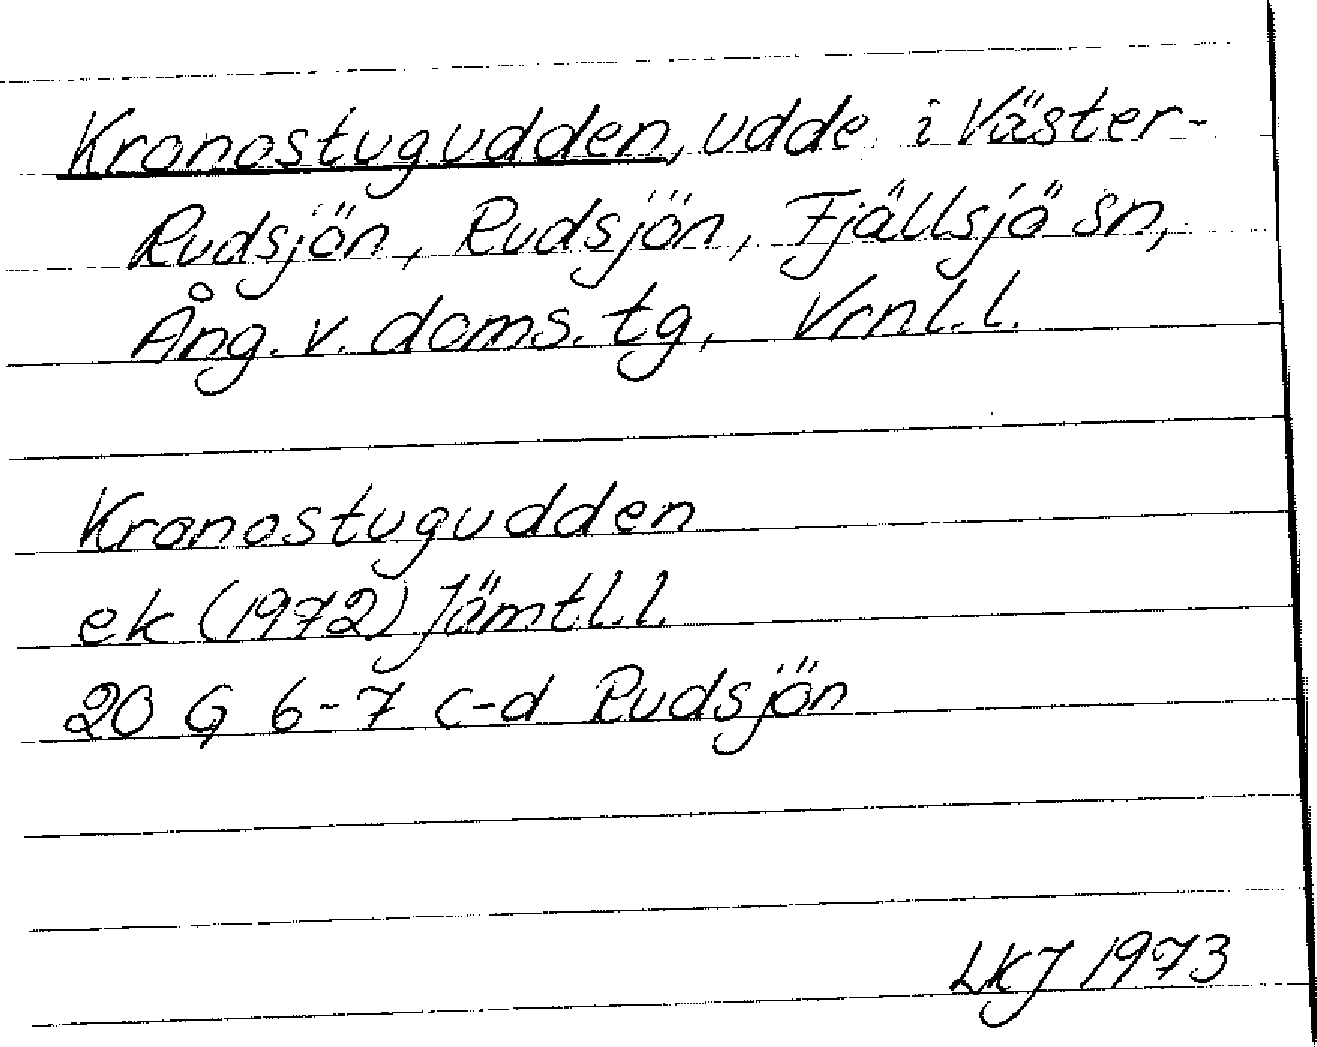 Kronostugudden, udde i Väster-
Rudsjön, Rudsjön, Fjällsjö sn,
Ång. v. doms. tg, Vrnl.l.
Kronostugudden
ek (1972) Jämtl.l.
20 G 6-7 c-d Rudsjön
LKJ 1973